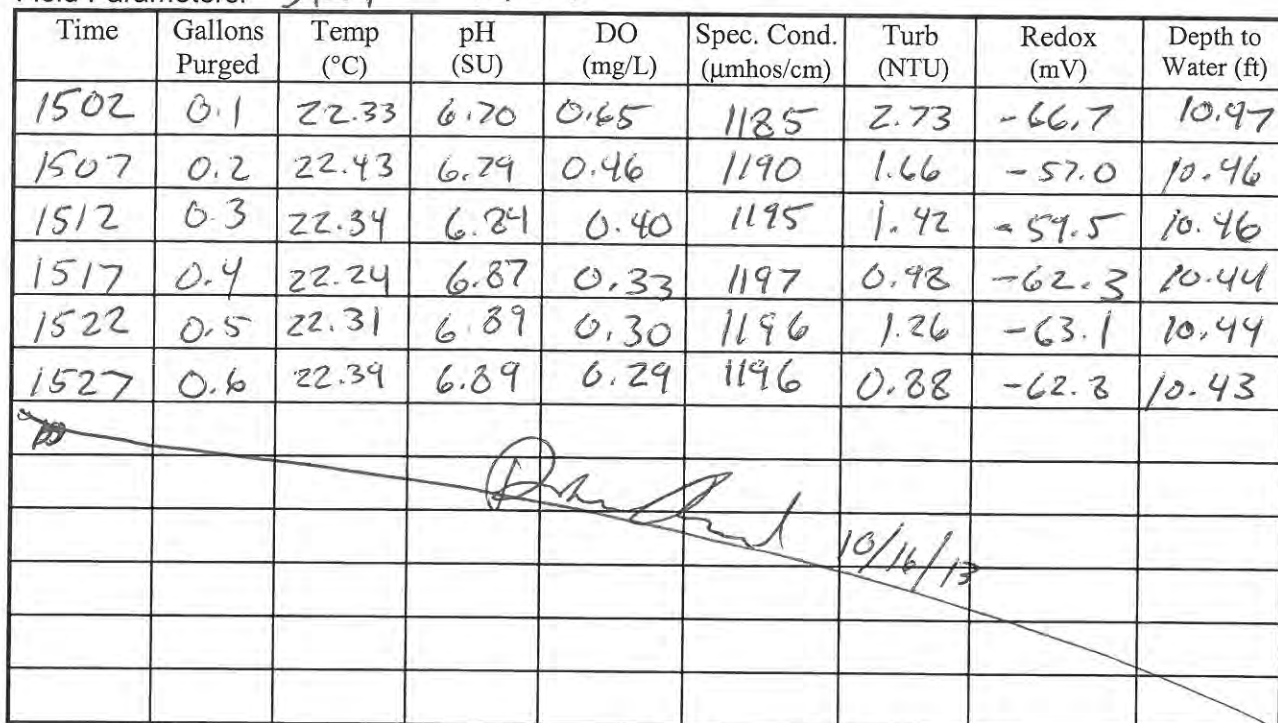 Time Gallons Purged Temp (°C) pH (SU) DO (mg/L) Spec. Cond. (µmhos/cm) Turb (NTU) Redox (mV) Depth to Water (ft)
1502 0.1 22.33 6.70 0.65 1185 2.73 -66.7 10.47
1507 0.2 22.43 6.79 0.46 1190 1.66 -57.0 10.46
1512 0.3 22.34 6.84 0.40 1195 1.42 -59.5 10.46
1517 0.4 22.24 6.87 0.33 1197 0.98 -62.3 10.44
1522 0.5 22.31 6.89 0.30 1196 1.26 -63.1 10.44
1527 0.6 22.39 6.89 0.29 1196 0.88 -62.8 10.43
10/16/13